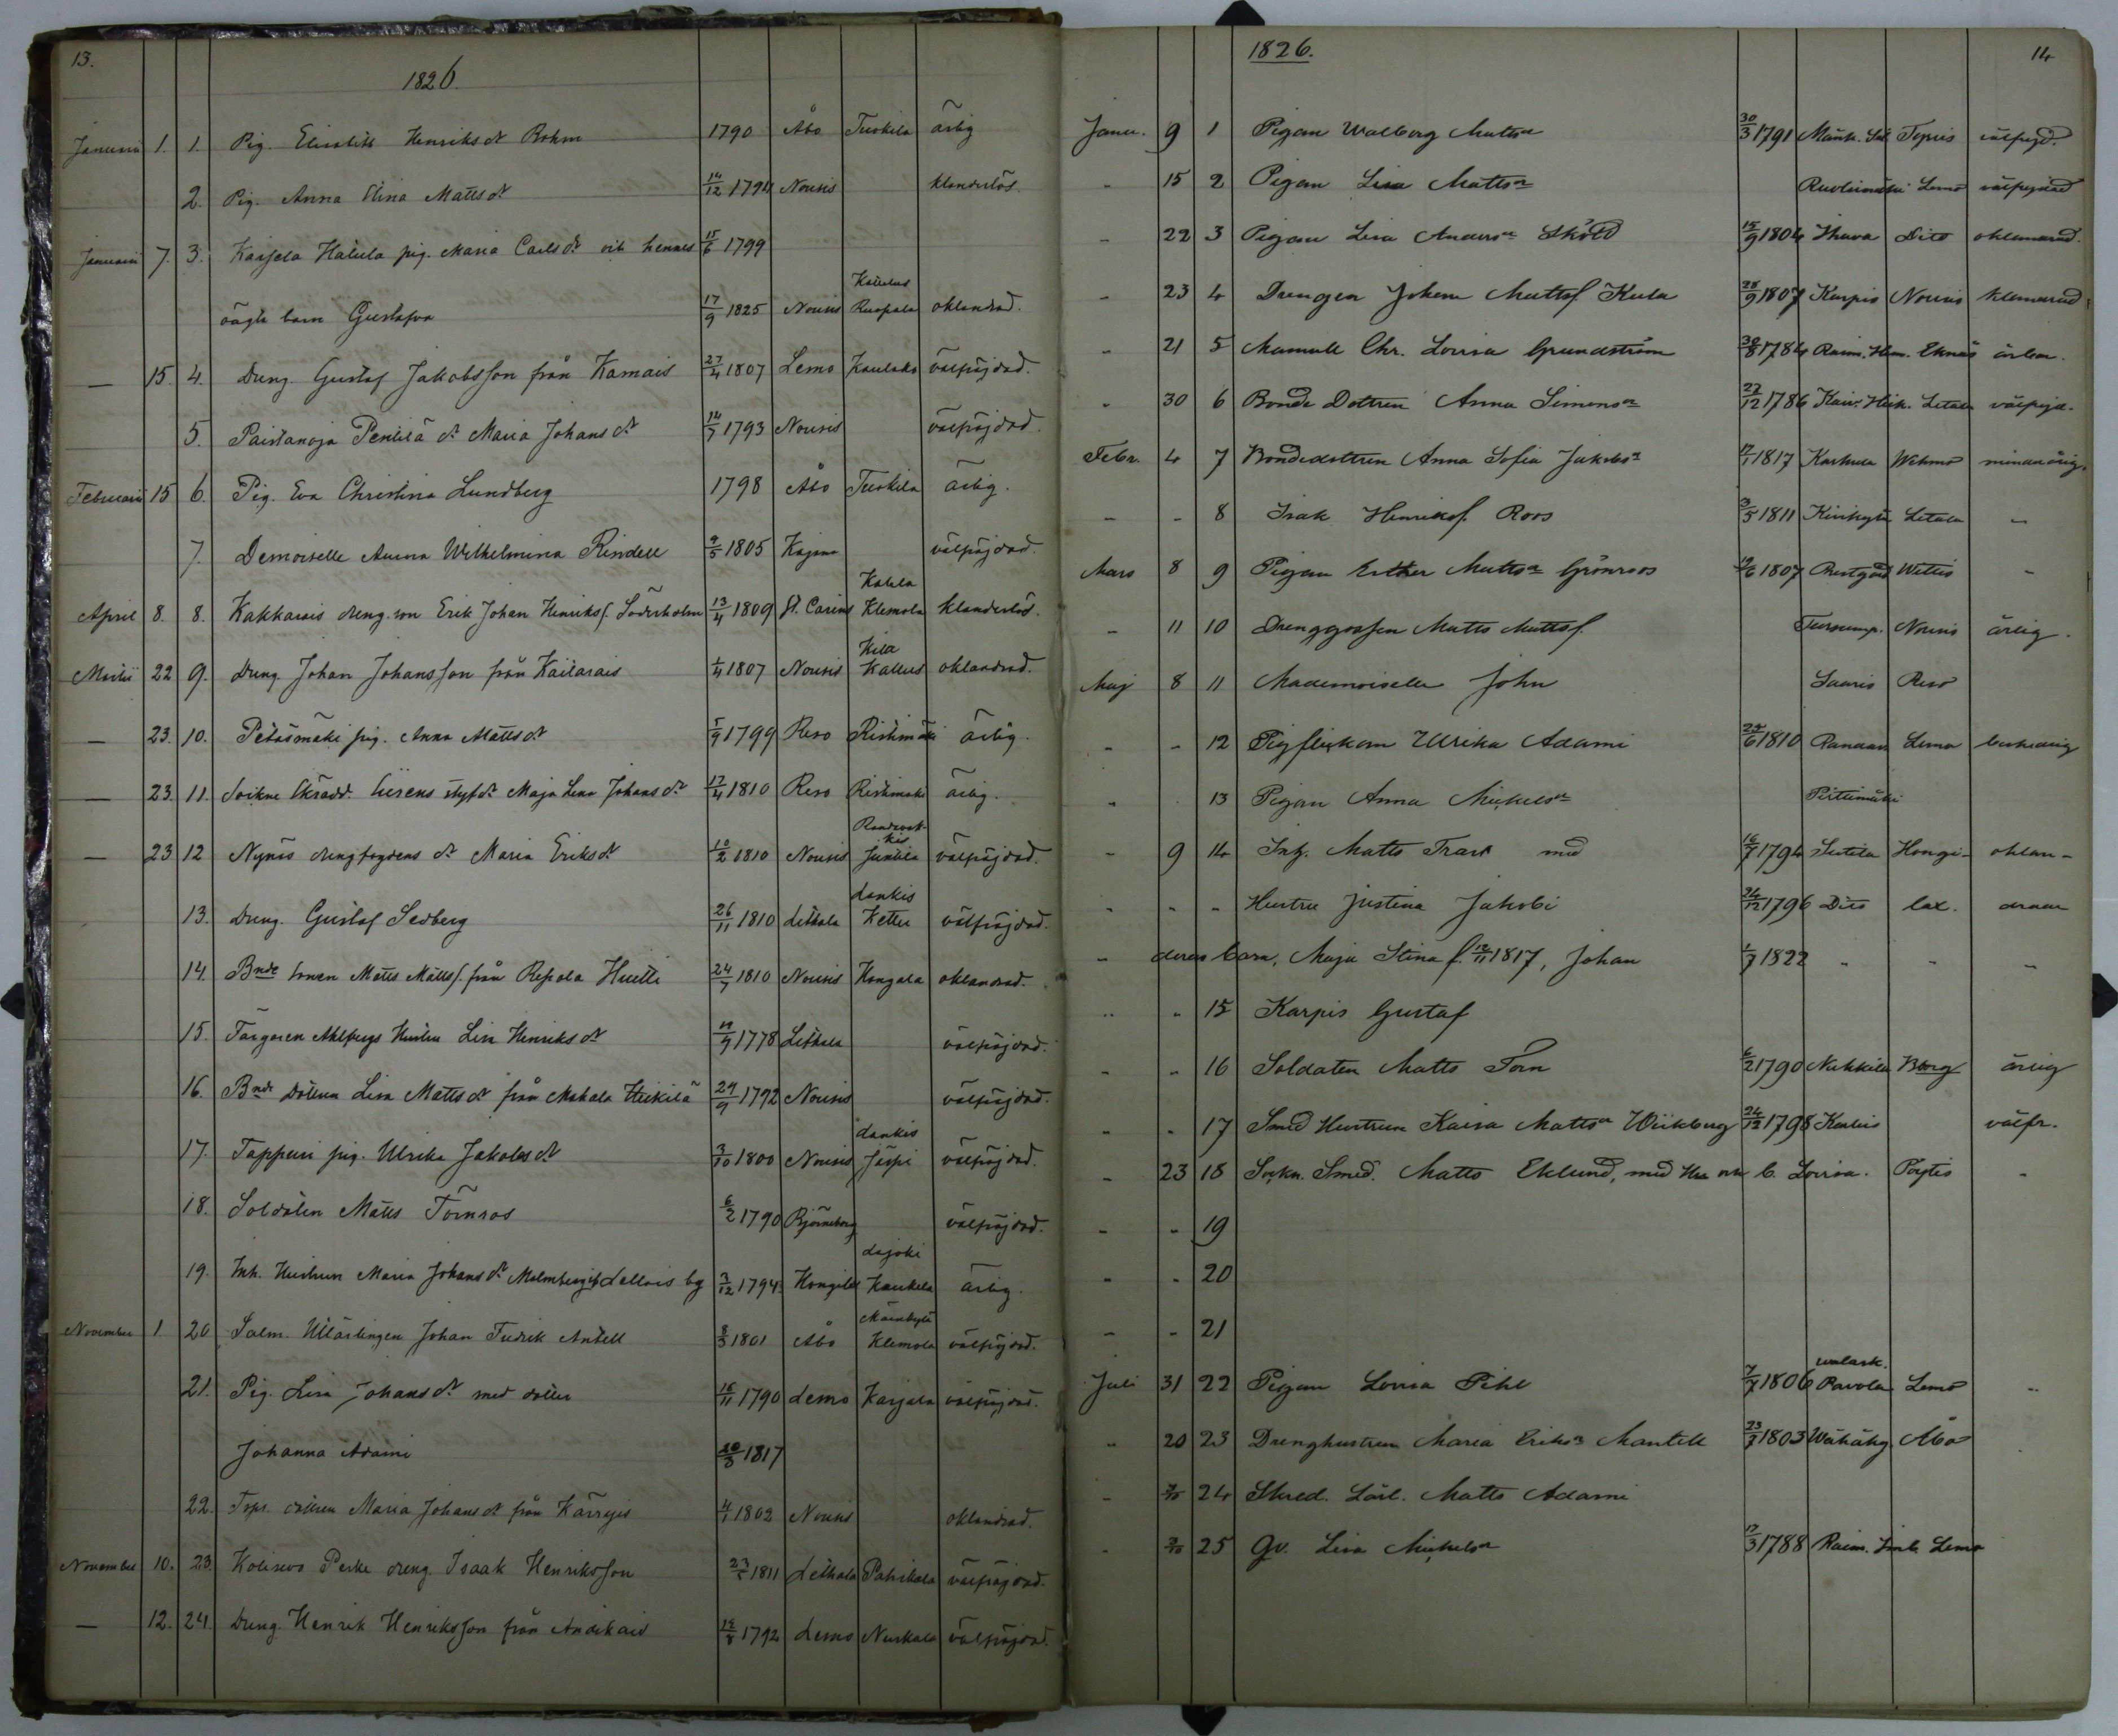 13.
1826.
Januari 1. 1. Pig. Elisabth Henriksdr Bohm 1790 Åbo Tuokila ärlig
2. Pig. Anna Stina Mattsdr 14/12 1794 Nousis klanderlös.
Januari 7. 3. Karjala Hakula pig. Maria Carlsdr och hennes 15/6 1799
oägta barn Gustafva 17/9 1825 Nousis Ruopala oklandrad.
— 15. 4. Dreng Gustaf Jakobsson från Kamais 27/4 1807 Lemo Kaulako välfräjdad.
5. Paistanoja Penttilä dr Maria Johansdr 14/7 1793 Nousis välfräjdad.
Februari 15 6. Pig. Eva Christina Lundberg 1798 Åbo Tuokila ärlig.
7. Demoiselle Anna Wilhelmina Rindell 9/5 1805 välfräjdad.
Katela
April 8. 8. Kakkarais dreng. son Erik Johan Henrikss. Söderholm 13/4 1809 St. Carins Klemola klanderlös.
Kila
Martii 22 9. Dreng Johan Johansson från Kailarais 1/4 1807 Nousis Kallus oklandrad.
— 23. 10. Petäsmäki pig. Anna Mattsdr 5/9 1799 Reso Ristimäki ärlig.
— 23. 11. Soikne Skrädd. styfdr Maja Lena Johansdr 17/4 1810 Reso Ristimäki ärlig.
— 23 12 Nynäs drengfogdens dr Maria Eriksdr 10/2 1810 Nousis Junnila välfräjdad.
Lankis
13. Dreng. Gustaf Sedberg 26/11 1810 Lethala Kettu välfräjdad.
14. Bnde sonen Matts Mattss. från Repola Huitti 24/7 1810 Nousis Kongala oklandrad.
15. Färgaren Ahlbergs Hustru Lisa Henriksdr 1778 Lethala välfräjdad.
16. Bnde dottren Lisa Mattsdr från Makala Heikilä 29/9 1792 Nousis välfräjdad.
Lankis
17. Tappuri pig. Ulrika Jakobsdr 3/10 1800 Nousis Jäspi välfräjdad.
18. Soldaten Matts Törnros 6/2 1790 Björneborg välfräjdad.
Lajoki
19. Inh. Hustrun Maria Johansdr Malmberg Lellais by 3/12 1794 Kaukela ärlig.
Mainkylä
November 1 20 Salm. Utlärlingen Johan Fredrik Antell 8/3 1801 Åbo Klemola välfräjdad.
21. Pig. Lisa Johansdr med dotter 16/11 1790 Lemo Karjala välfräjdad.
Johanna Adami 20/3 1817
22. Torp. dottren Maria Johansdr från Kärrais 4/1 1802 Nousis oklandrad.
November 10. 23. Kolisevo Perke dreng. Isaak Henriksson 23/5 1811 Lethala Pahikala välfräjdad.
— 12. 24. Dreng. Henrik Henriksson från Andikais 12/8 1792 Lemo Nuikala välfräjdad.
14
1826.
Janu. 9 1 Pigan Walborg Mattsdr 30/3 1791 välfrejd.
- 15 2 Pigan Lisa Mattsdr Lemo välfrejdad
- 22 3 Pigan Lisa Andersdr Sköld 15/9 1804 Dito oklandrad.
- 23 4 Drengen Johan Mattss. Kula 28/9 1807 Karpis Nousis klandrad
- 21 5 Mamsell Chr. Lovisa Grundström 30/8 1784
- 30 6 Bonde Dottren Anna Simonsdr 27/12 1786 Letala välfrejd.
Febr. 4 7 Bondedottren Anna Sofia Jakobsdr 1817 Karhula Wehmo minderårig.
- - 8 Isak Henrikss. Roos 3/5 1811 Letala -
Mars 8 9 Pigan Esther Mattsdr Grönroos 1807 Prestgård Wittis -
- 11 10 Drenggossen Matts Mattss. Nousis ärlig.
Maj 8 11 Mademoiselle John Saaris Reso
- - 12 Pigflickan Ulrika Adami 1810 Lemo beskedlig
- 13 Pigan Anna Mickelsdr Pirttimäki
- 9 14 Inh. Matts Trast med 16/7 1794 oklan-
- - - Hustru Justina Jakobi 24/12 1796 Dito drade
- deras barn, Maja Stina f. 12/11 1817, Johan 1/7 1822 - - -
- - 15 Karpis Gustaf
- - 16 Soldaten Matts Törn 6/2 1790 Nakkila Bborg ärlig
- - 17 Smed Hustrun Kaisa Mattsdr Wickberg 24/12 1798 välfr.
- 23 18 Sockn. Smed. Matts Eklund, med Hu och b. Lovisa. Pöytis -
- - 19
- - 20
- - 21
Juli 31 22 Pigan Lovisa Pihl 7/7 1806 Pavola Lemo -
- 20 23 Drenghustrun Maria Eriksdr Mantell 23/7 1803 Åbo
- 24 Skred. Lärl. Matts Adami
- 25 Gv. Lisa Mickelsdr 17/3 1788 Lemo